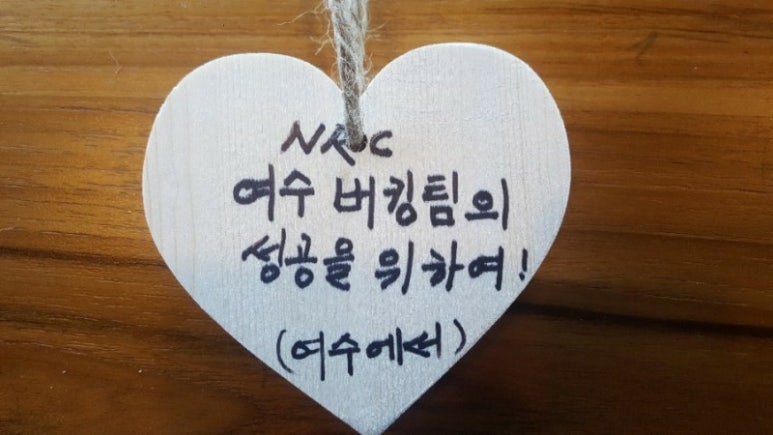 여수 버킹팀의
성공을 위하여!
(여수에서)